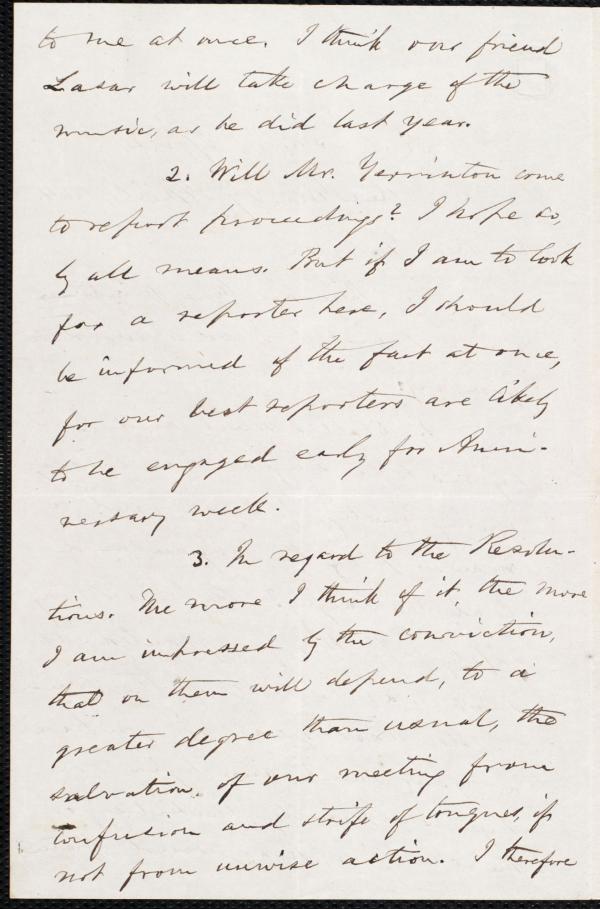 to me at once. I think our friend
Lasar will take charge of the
music, as he did last year.
2. Will Mr. Yerrinton come
to report proceedings? I hope so,
by all means. But if I am to look
for a reporter here, I should
be informed of the fact at once,
for our best reporters are likely
to be engaged early for Anni-
versary week.
3. In regard to the Resolu-
tions. The more I think of it, the more
I am impressed by the conviction,
that on them will depend, to a
greater degree than usual, the
salvation of our meeting from
confusion and strife of tongues, if
not from unwise action. I therefore